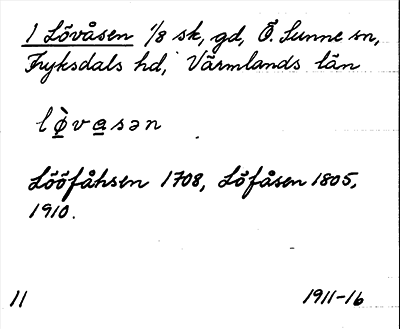 1 Lövåsen 1/8 sk, gd, Ö. Sunne sn,
Fryksdals hd, Värmlands län
lø̀vasən
Lööfåhsen 1708, Löfåsen 1805,
1910.
11 1911-16